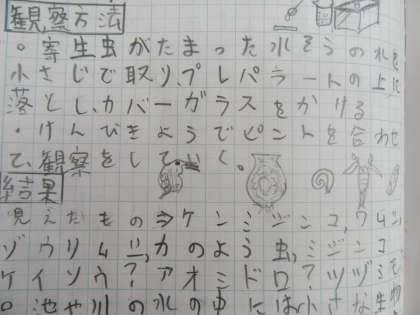 観察方法
○寄生虫がたまった水そうの水を
小さじで取り、プレパラートの上に
落とし、カバーガラスをかける
・けんびきょうでピントを合わせ
て、観察をしていく。
結果
見えたもの⇒ケンミジンコ,ワムシ,
ゾウリムシ,カのような虫,ミジンコ
ケイソウ?アオミドロ?ツヅミモ
○池や川の水の中には小さな生物